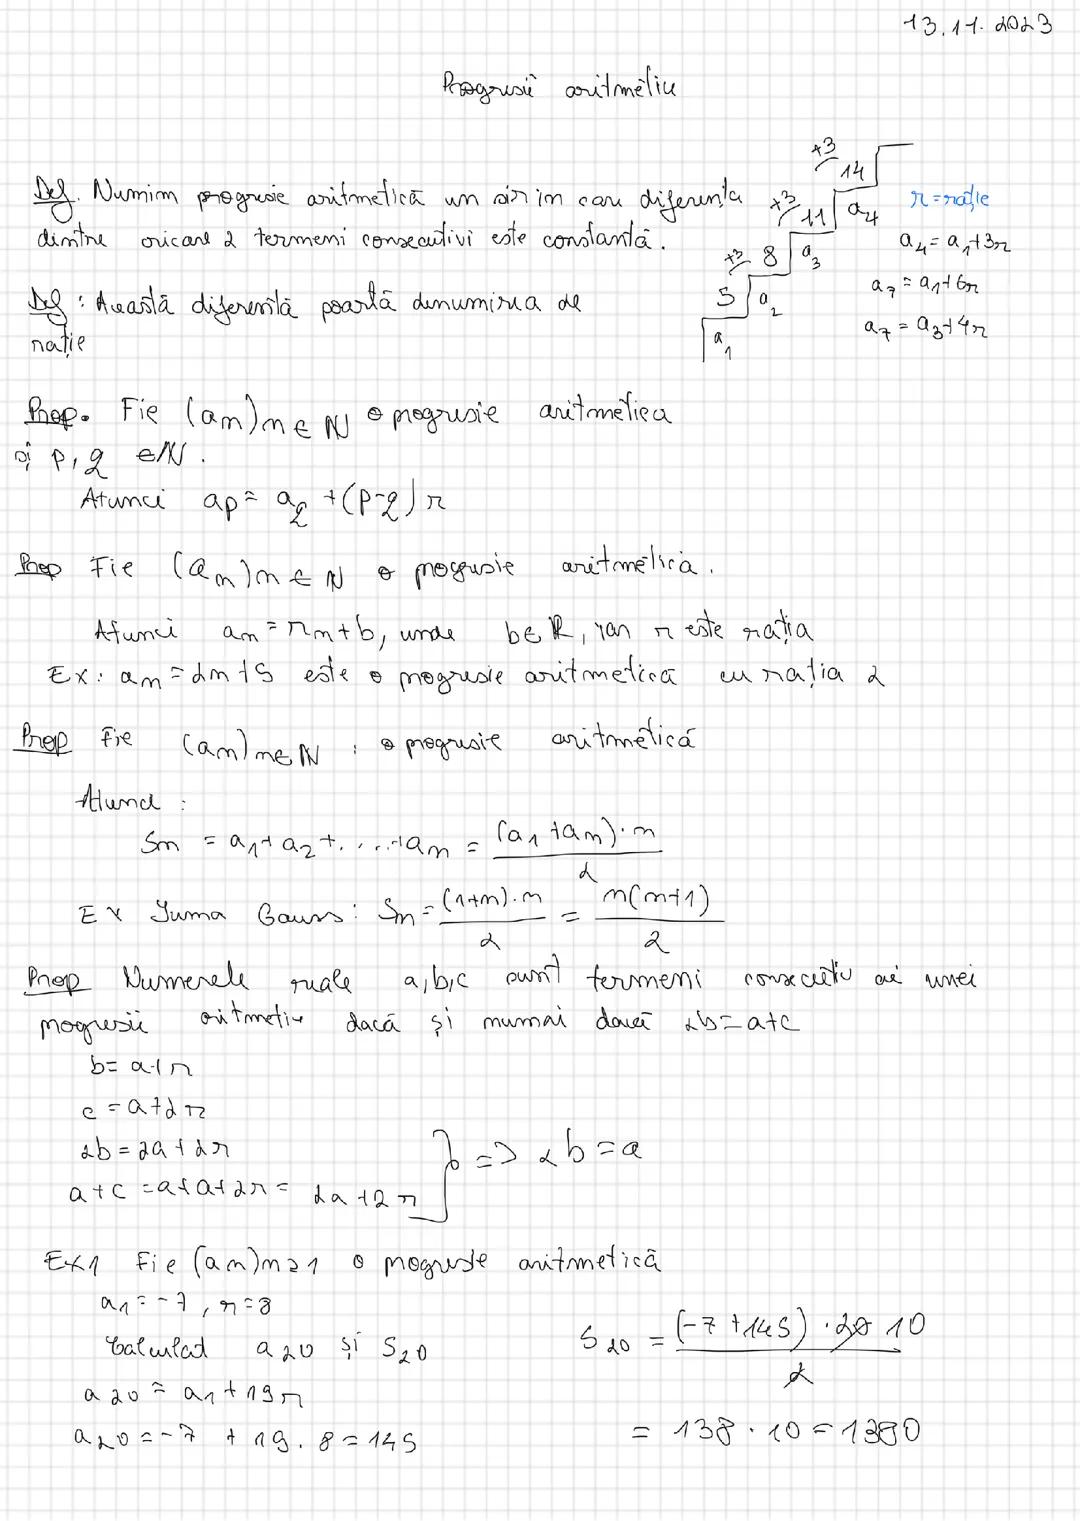 13.11.2023
Progresii aritmetice
Def. Numim progresie aritmetică un șir în care diferența
dintre oricare 2 termeni consecutivi este constantă.
+3
14
+3
11
a4
+3
8
a3
5
a2
a1
r = rație
a4 = a1+3r
a7 = a1+6r
a7 = a3+4r
Def : Această diferență poartă denumirea de
rație
Prop. Fie (an)n∈N o progresie aritmetica
și p,q ∈N.
Atunci ap = aq +(p-q)r
Prop Fie (an)n∈N o progresie aritmetică.
Atunci an = rn+b, unde b∈R, iar r este rația
Ex: an = 2n+5 este o progresie aritmetică cu rația 2
Prop Fie (an)n∈N : o progresie aritmetică
Atunci :
Sn = a1+a2+.....+an = (a1+an)·n / 2
Ex Suma Gauss: Sn = (1+n)·n / 2 = n(n+1) / 2
Prop Numerele reale a,b,c sunt termeni consecutivi ai unei
progresii aritmetice dacă și numai dacă 2b=a+c
b= a+r
c = a+2r
2b = 2a+2r
a+c = a+a+2r = 2a+2r } => 2b=a
Ex1 Fie (an)n≥1 o progresie aritmetică
a1=-7, r=8
Calculati a20 și S20
a20 = a1+19r
a20 = -7 + 19·8 = 145
S20 = (-7+145)·20 10 / 2
= 138·10 = 1380